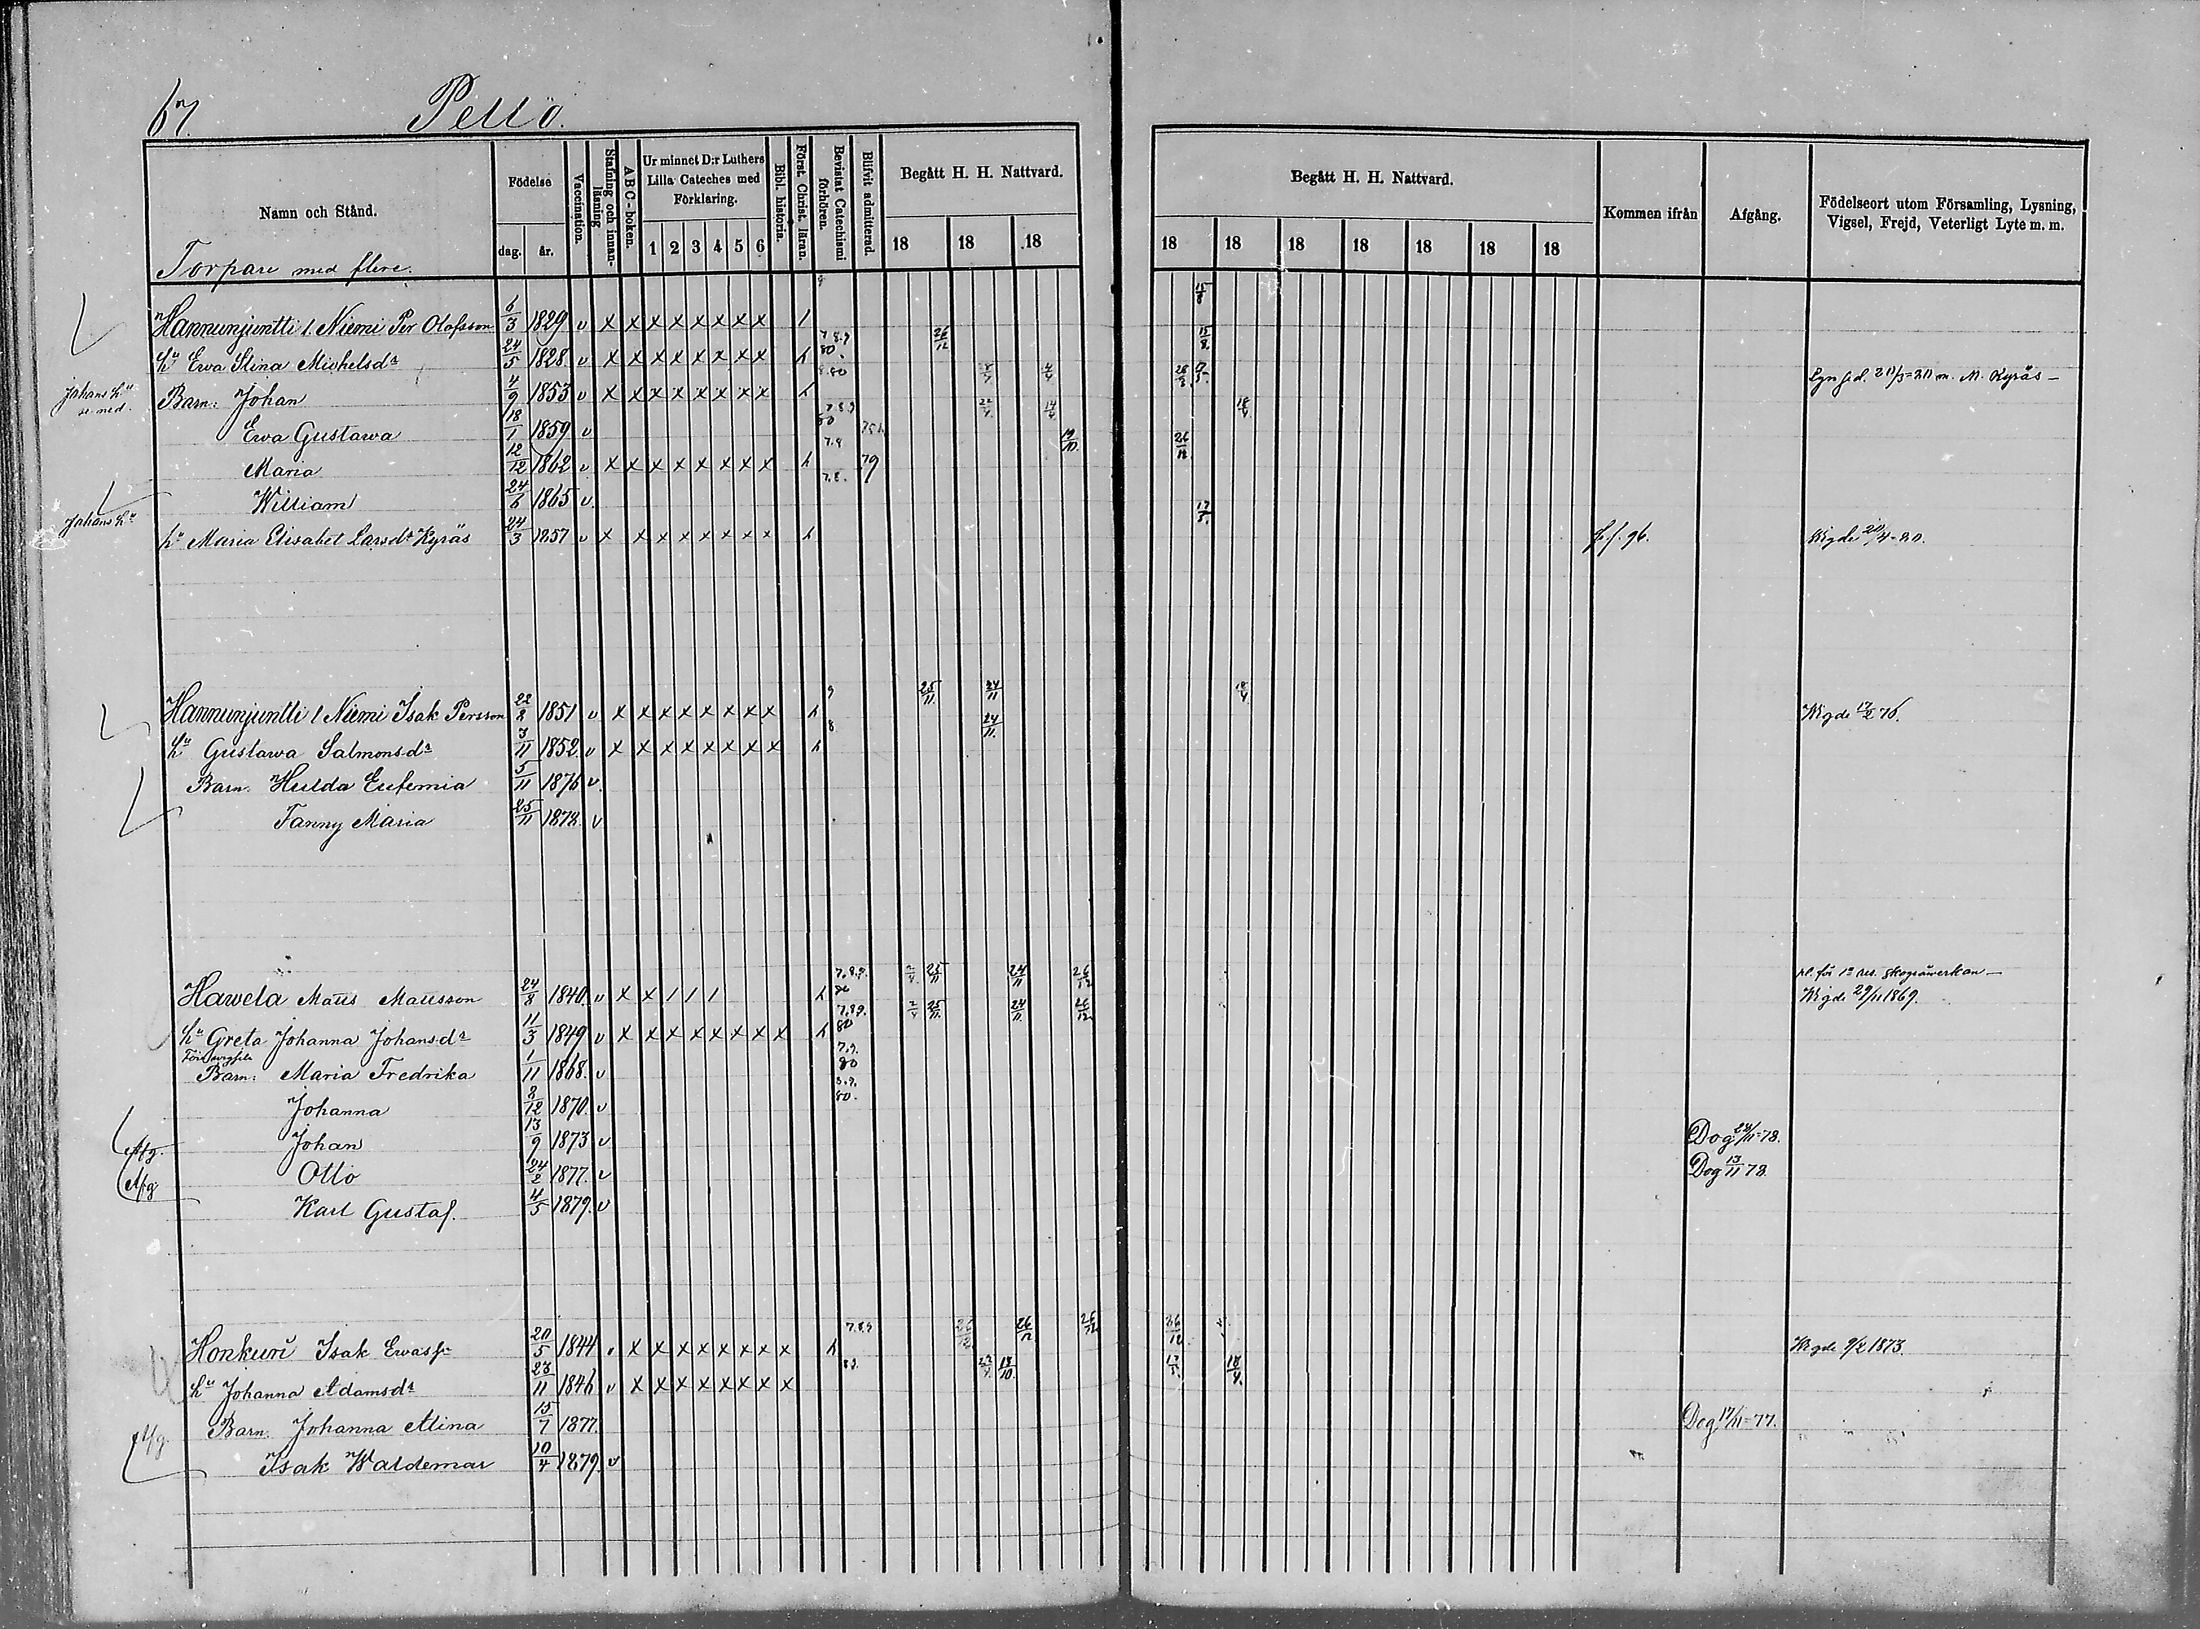 67. Pello.
Namn och Stånd.
Födelse
dag. år.
Vaccination.
Stafning och innanläsning
ABC-boken.
Ur minnet D:r Luthers Lilla Cateches med Förklaring.
1 2 3 4 5 6
Bibl. historia.
Först. Christ. läran.
Bevistat Catechismi förhören.
Blifvit admitterad.
Begått H. H. Nattvard.
18 18 18
Begått H. H. Nattvard.
18 18 18 18 18 18 18
Kommen ifrån
Afgång.
Födelseort utom Församling, Lysning,
Vigsel, Frejd, Veterligt Lyte m. m.
Torpare med flere.
Hannunjuntti l. Niemi Per Olofsson 6/3 1829 v x x x x x x x x 1 15/8
hu Ewa Stina Michelsdr 24/5 1828. v x x x x x x x x h 7.8.9 80. 26/12 15/8.
Johans hu
se ned.
Barn: Johan 4/9 1853 v x x x x x x x x h 8.80 Lyngd. 20/3=80 m. M. Kyräs
Ewa Gustawa 18/1 1859 v 7.8.9 80 22/4 14/4 18/4
Maria 12/12 1862 v x x x x x x x x h 7.8 79 26/12
William 24/6 1865 v. 7.8.
Johans hu
hu Maria Elisabet Larsdr Kyräs 24/3 1857 v x x x x x x x x h 17/5. f. f. 96. Wigde 20/4-80.
Hannunjuntti l Niemi Isak Persson 22/8 1851 v x x x x x x x x h 9 25/11. 24/11 18/4. Wigde 17/2 76.
hu Gustawa Salmonsdr 3/11 1852. v x x x x x x x x h 8 24/11.
Barn. Hulda Eufemia 5/11 1876 v.
Fanny Maria 25/11 1878. v
Hawela Maüs Maüsson 24/8 1840. v x x 1 1 1 h 7.8.9. 80 25/11 24/11 26/12 pl. för 1a res. skogsåwerkan
Wigde 29/11 1869.
hu Greta Johanna Johansdr 11/3 1849 v x x x x x x x x h 7.8.9. 80 25/11. 24/11. 26/12.
Barn: Maria Fredrika 1/11 1868. v 7.9. 80
Johanna 3/12 1870. v 8.9. 80.
Afg. Johan 13/9 1873 v Dog 28/11=78.
Afg Otto 24/2 1877. v Dog 13/11 78.
Karl Gustaf. 4/5 1879. v
Honkuri Isak Ewasson 20/5 1844 v x x x x x x x x h 7.8.9 26/12 26/12 26/12 26/12 Wigde 9/2 1873.
hu Johanna Adamsdr 28/11 1846 v x x x x x x x x 18/10. 18/4.
Afg. Barn. Johanna Alina 15/7 1877. Dog 17/11=77.
Isak Waldemar 10/4 1879. v